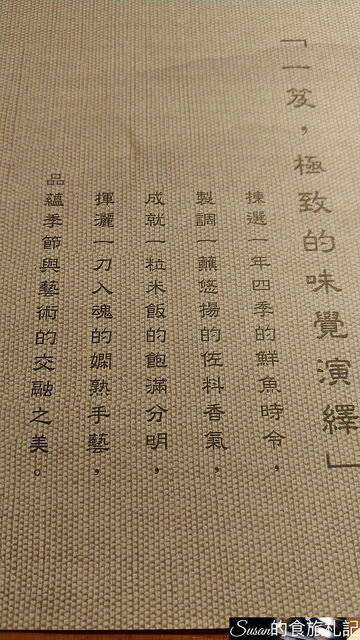 「一笈，極致的味覺演繹」
揀選一年四季的鮮魚時令，
製調一蘸悠揚的佐料香氣，
成就一粒米飯的飽滿分明，
揮灑一刀入魂的嫻熟手藝，
品蘊季節與藝術的交融之美。
Susan的食旅札記